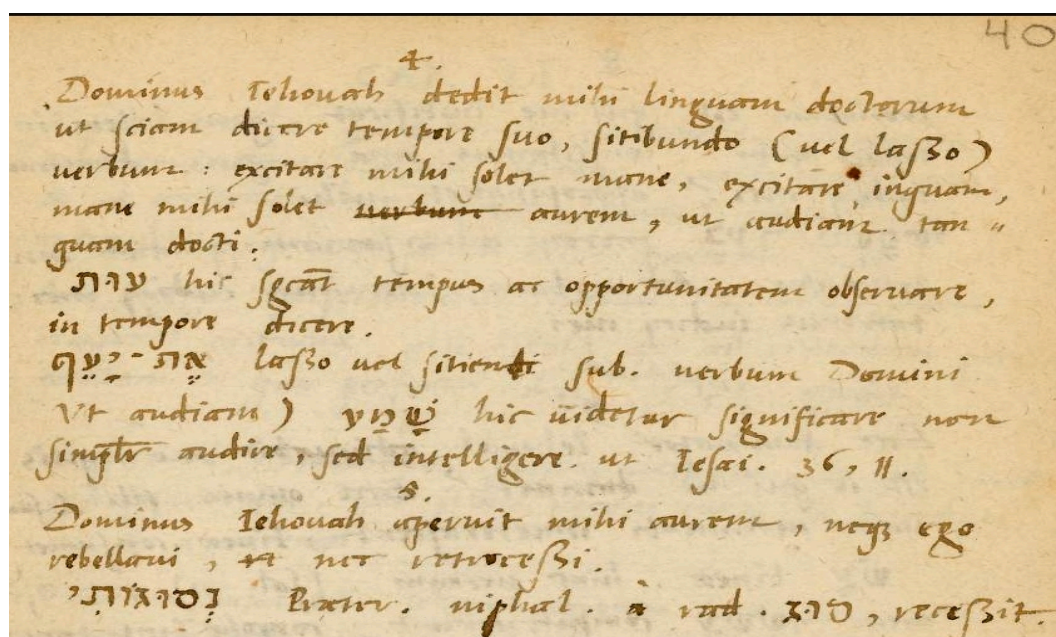 40
4.
Dominus Iehovah dedit mihi linguam doctorum
ut sciam dicere tempore suo, sitibundo (vel laßo)
verbum: excitare mihi solet mane, excitare, inquam,
mane mihi solet verbum aurem, ut audiam tan„
quam docti.
עות hic sgcāt tempus ac opportunitatem observare,
in tempore dicere.
אֶת־יָעֵף laßo vel sitienti sub. verbum Domini
Vt audiam) שָׁמַע hic videtur significare non
simplr audire, sed intelligere. ut Iesai. 36, 11.
5.
Dominus Iehovah aperuit mihi aurem, neqz ego
rebellavi, nec retroceßi.
נְסוּגוֹתִי Præter. niphal. à rad. סוג, receßit.